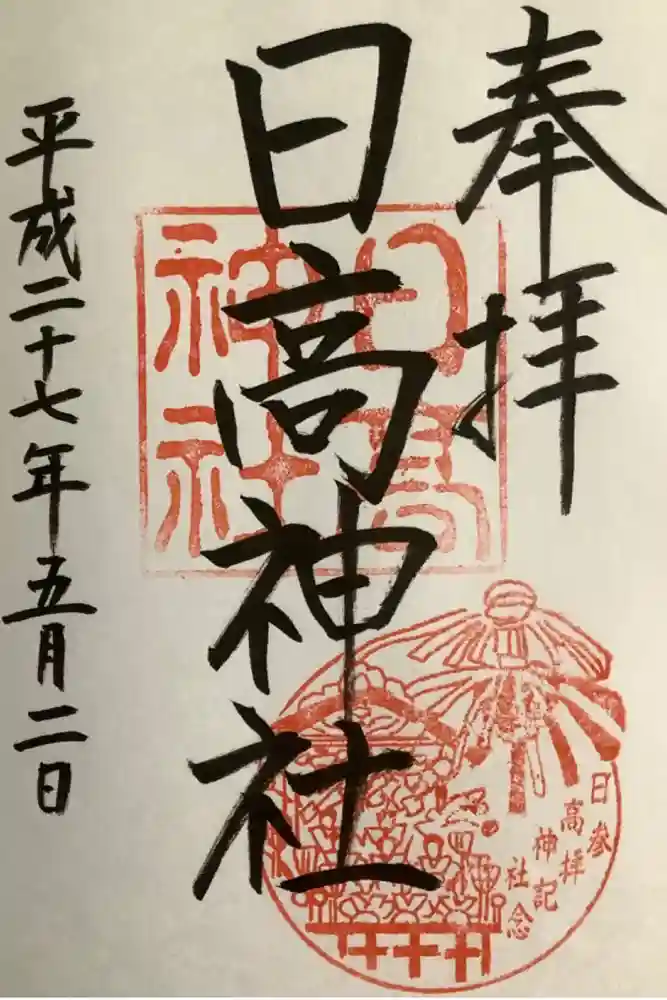 奉拝
日高神社
日高
神社
日高神社
参拝記念
平成二十七年五月二日